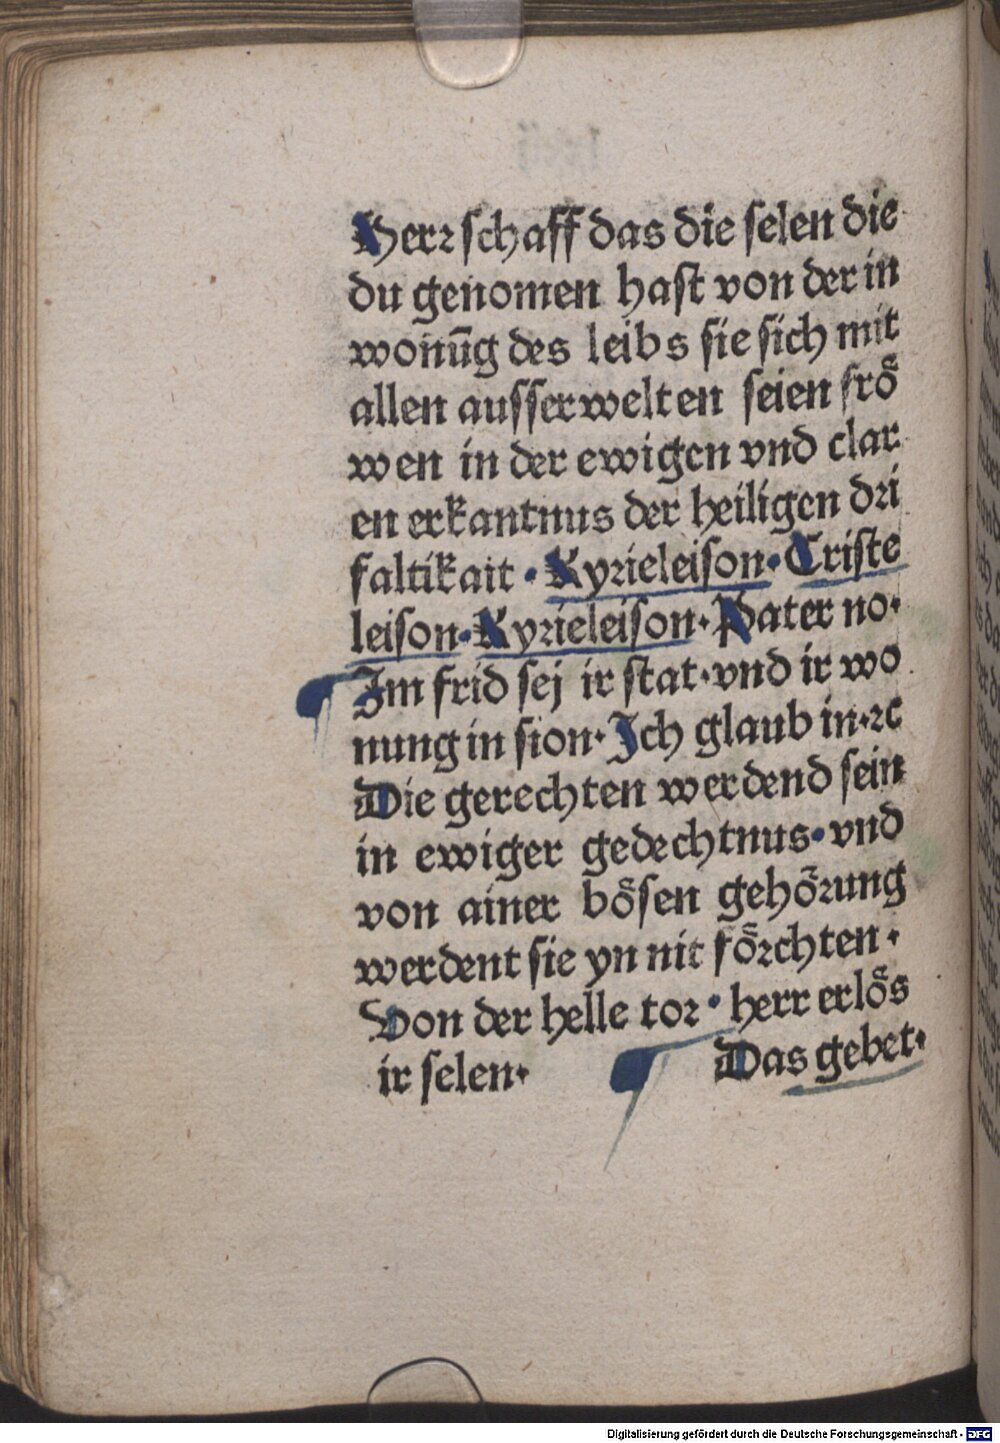 Herr schaff das die selen die
du genomen hast von der in
wonūg des leibs sie sich mit
allen ausserwelten seien frö
wen in der ewigen vnd clar
en erkantnus der heiligen dri
faltikait · Kyrieleison · Criste
leison · Kyrieleison · Pater no ·
Im frid sej ir stat · vnd ir wo
nung in sion · Ich glaub in · ꝛc
Die gerechten werdend sein
in ewiger gedechtnus · vnd
von ainer bösen gehörung
werdent sie yn nit förchten ·
Von der helle tor · herr erlös
ir selen ·
Das gebet ·
Digitalisierung gefördert durch die Deutsche Forschungsgemeinschaft - DFG